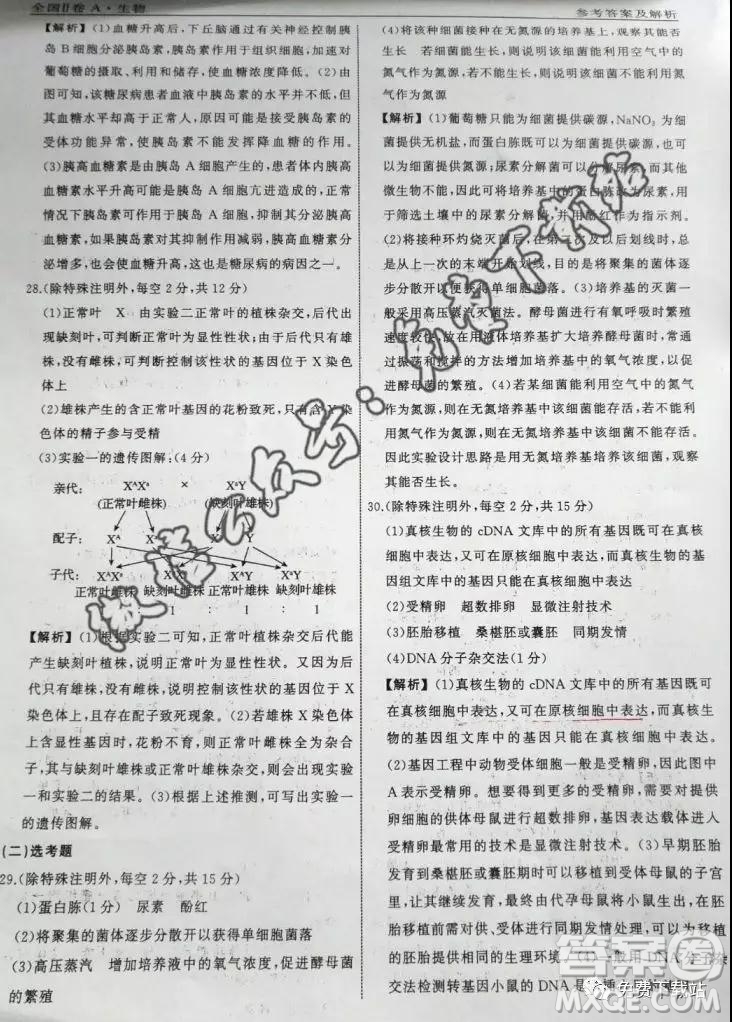 全国Ⅱ卷A·生物
参考答案及解析
【解析】(1)血糖升高后，下丘脑通过有关神经控制胰
岛B细胞分泌胰岛素，胰岛素作用于组织细胞，加速
葡萄糖的摄取、利用和储存，使血糖浓度降低。(2)由
图可知，该糖尿病患者血液中胰岛素的水平并不低，但
其血糖水平却高于正常人，原因可能是接受胰岛素的
受体功能异常，使胰岛素不能发挥降血糖的作用。
(3)胰高血糖素是由胰岛A细胞产生的，患者体内胰高
血糖素水平升高可能是胰岛A细胞亢进造成的，正常
情况下胰岛素可作用于胰岛A细胞，抑制其分泌胰高
血糖素，如果胰岛素对其抑制作用减弱，胰高血糖素分
泌增多，也会使血糖升高，这是糖尿病的病因之一。
28.(除特殊注明外，每空2分，共12分)
(1)正常叶 X 由实验二正常叶的植株杂交，后代出
现缺刻叶，可判断正常叶为显性性状；后代只有雄株，
没有雌株，可判断控制该性状的基因位于X染色
体上
(2)雄株产生的含正常叶基因的花粉致死，只有含X染
色体的精子参与受精
(3)实验一的遗传图解：(4分)
亲代： XᴬXᵃ × XᵃY
(正常叶雌株) (缺刻叶雄株)
配子： Xᴬ Xᵃ Xᵃ Y
子代： XᴬXᵃ XᵃXᵃ XᴬY XᵃY
正常叶雌株 缺刻叶雌株 正常叶雄株 缺刻叶雄株
1 : 1 : 1
【解析】(1)根据实验二可知，正常叶植株杂交后代能
产生缺刻叶植株，说明正常叶为显性性状。又因为后
代只有雄株，没有雌株，说明控制该性状的基因位于X
染色体上，且存在配子致死现象。(2)若雄株X染色体
上含显性基因时，花粉不育，则正常雌株全为杂合
子，其与缺刻叶雄株或正常叶雄株杂交，则会出现实验
一和实验二的结果。(3)根据上述推测，可写出实验一
的遗传图解。
(二)选考题
29.(除特殊注明外，每空2分，共15分)
(1)蛋白胨(1分) 尿素 酚红
(2)将聚集的菌体逐步分散开以获得单细胞菌落
(3)高压蒸汽 增加培养液中的氧气浓度，促进酵母菌
的繁殖
(4)将该细菌接种在无氮源的培养基上，观察其能否
生长 若细菌能生长，则说明该细菌能利用空气中的
氮气作为氮源，若不能生长，则说明该细菌不能利用氮
气作为氮源
【解析】(1)葡萄糖只能为细菌提供碳源，NaNO₃为细
菌提供无机盐，而蛋白胨既可以为细菌提供碳源，也可
以为其提供氮源；尿素分解菌可以分解尿素，而其他
微生物不能，因此可将培养基中的蛋白胨改为尿素，用
于筛选土壤中的尿素分解菌，并用酚红作为指示剂。
(2)将接种环灼烧灭菌后，在第二次及以后划线时，总
是从上一次的末端开始划线，目的是将聚集的菌体逐
步分散开以便获得单细胞菌落。(3)培养基的灭菌一
般采用高压蒸汽灭菌法。酵母菌进行有氧呼吸时繁殖
速度较快，故在用液体培养基扩大培养酵母菌时，常通
过振荡和搅拌的方法增加培养基中的氧气浓度，以促
进酵母菌的繁殖。(4)若某细菌能利用空气中的氮气
作为氮源，则在无氮培养基中该细菌能存活，若不能利
用氮气作为氮源，则在无氮培养基中该细菌不能存活。
因此实验设计思路是用无氮培养基培养该细菌，观察
其能否生长。
30.(除特殊注明外，每空2分，共15分)
(1)真核生物的cDNA文库中的所有基因既可在真核
细胞中表达，又可在原核细胞中表达，而真核生物的基
因组文库中的基因只能在真核细胞中表达
(2)受精卵 超数排卵 显微注射技术
(3)胚胎移植 桑椹胚或囊胚 同期发情
(4)DNA分子杂交法(1分)
【解析】(1)真核生物的cDNA文库中的所有基因既可
在真核细胞中表达，又可在原核细胞中表达，而真核生
物的基因组文库中的基因只能在真核细胞中表达。
(2)基因工程中动物受体细胞一般是受精卵，因此图中
A表示受精卵。想要得到更多的受精卵，需要对提供
卵细胞的供体母鼠进行超数排卵，将基因导入受精卵
最常用的技术方法是显微注射技术。(3)早期胚胎
发育到桑椹胚或囊胚阶段可移植到受体母鼠的子宫
内，让其继续发育，最终由代孕母鼠将小鼠生出，在胚
胎移植前需对供、受体进行同期发情处理，可以为移植
的胚胎提供相同的生理环境。(4)一般用DNA分子杂
交法检测转基因小鼠的DNA是
免费下载站